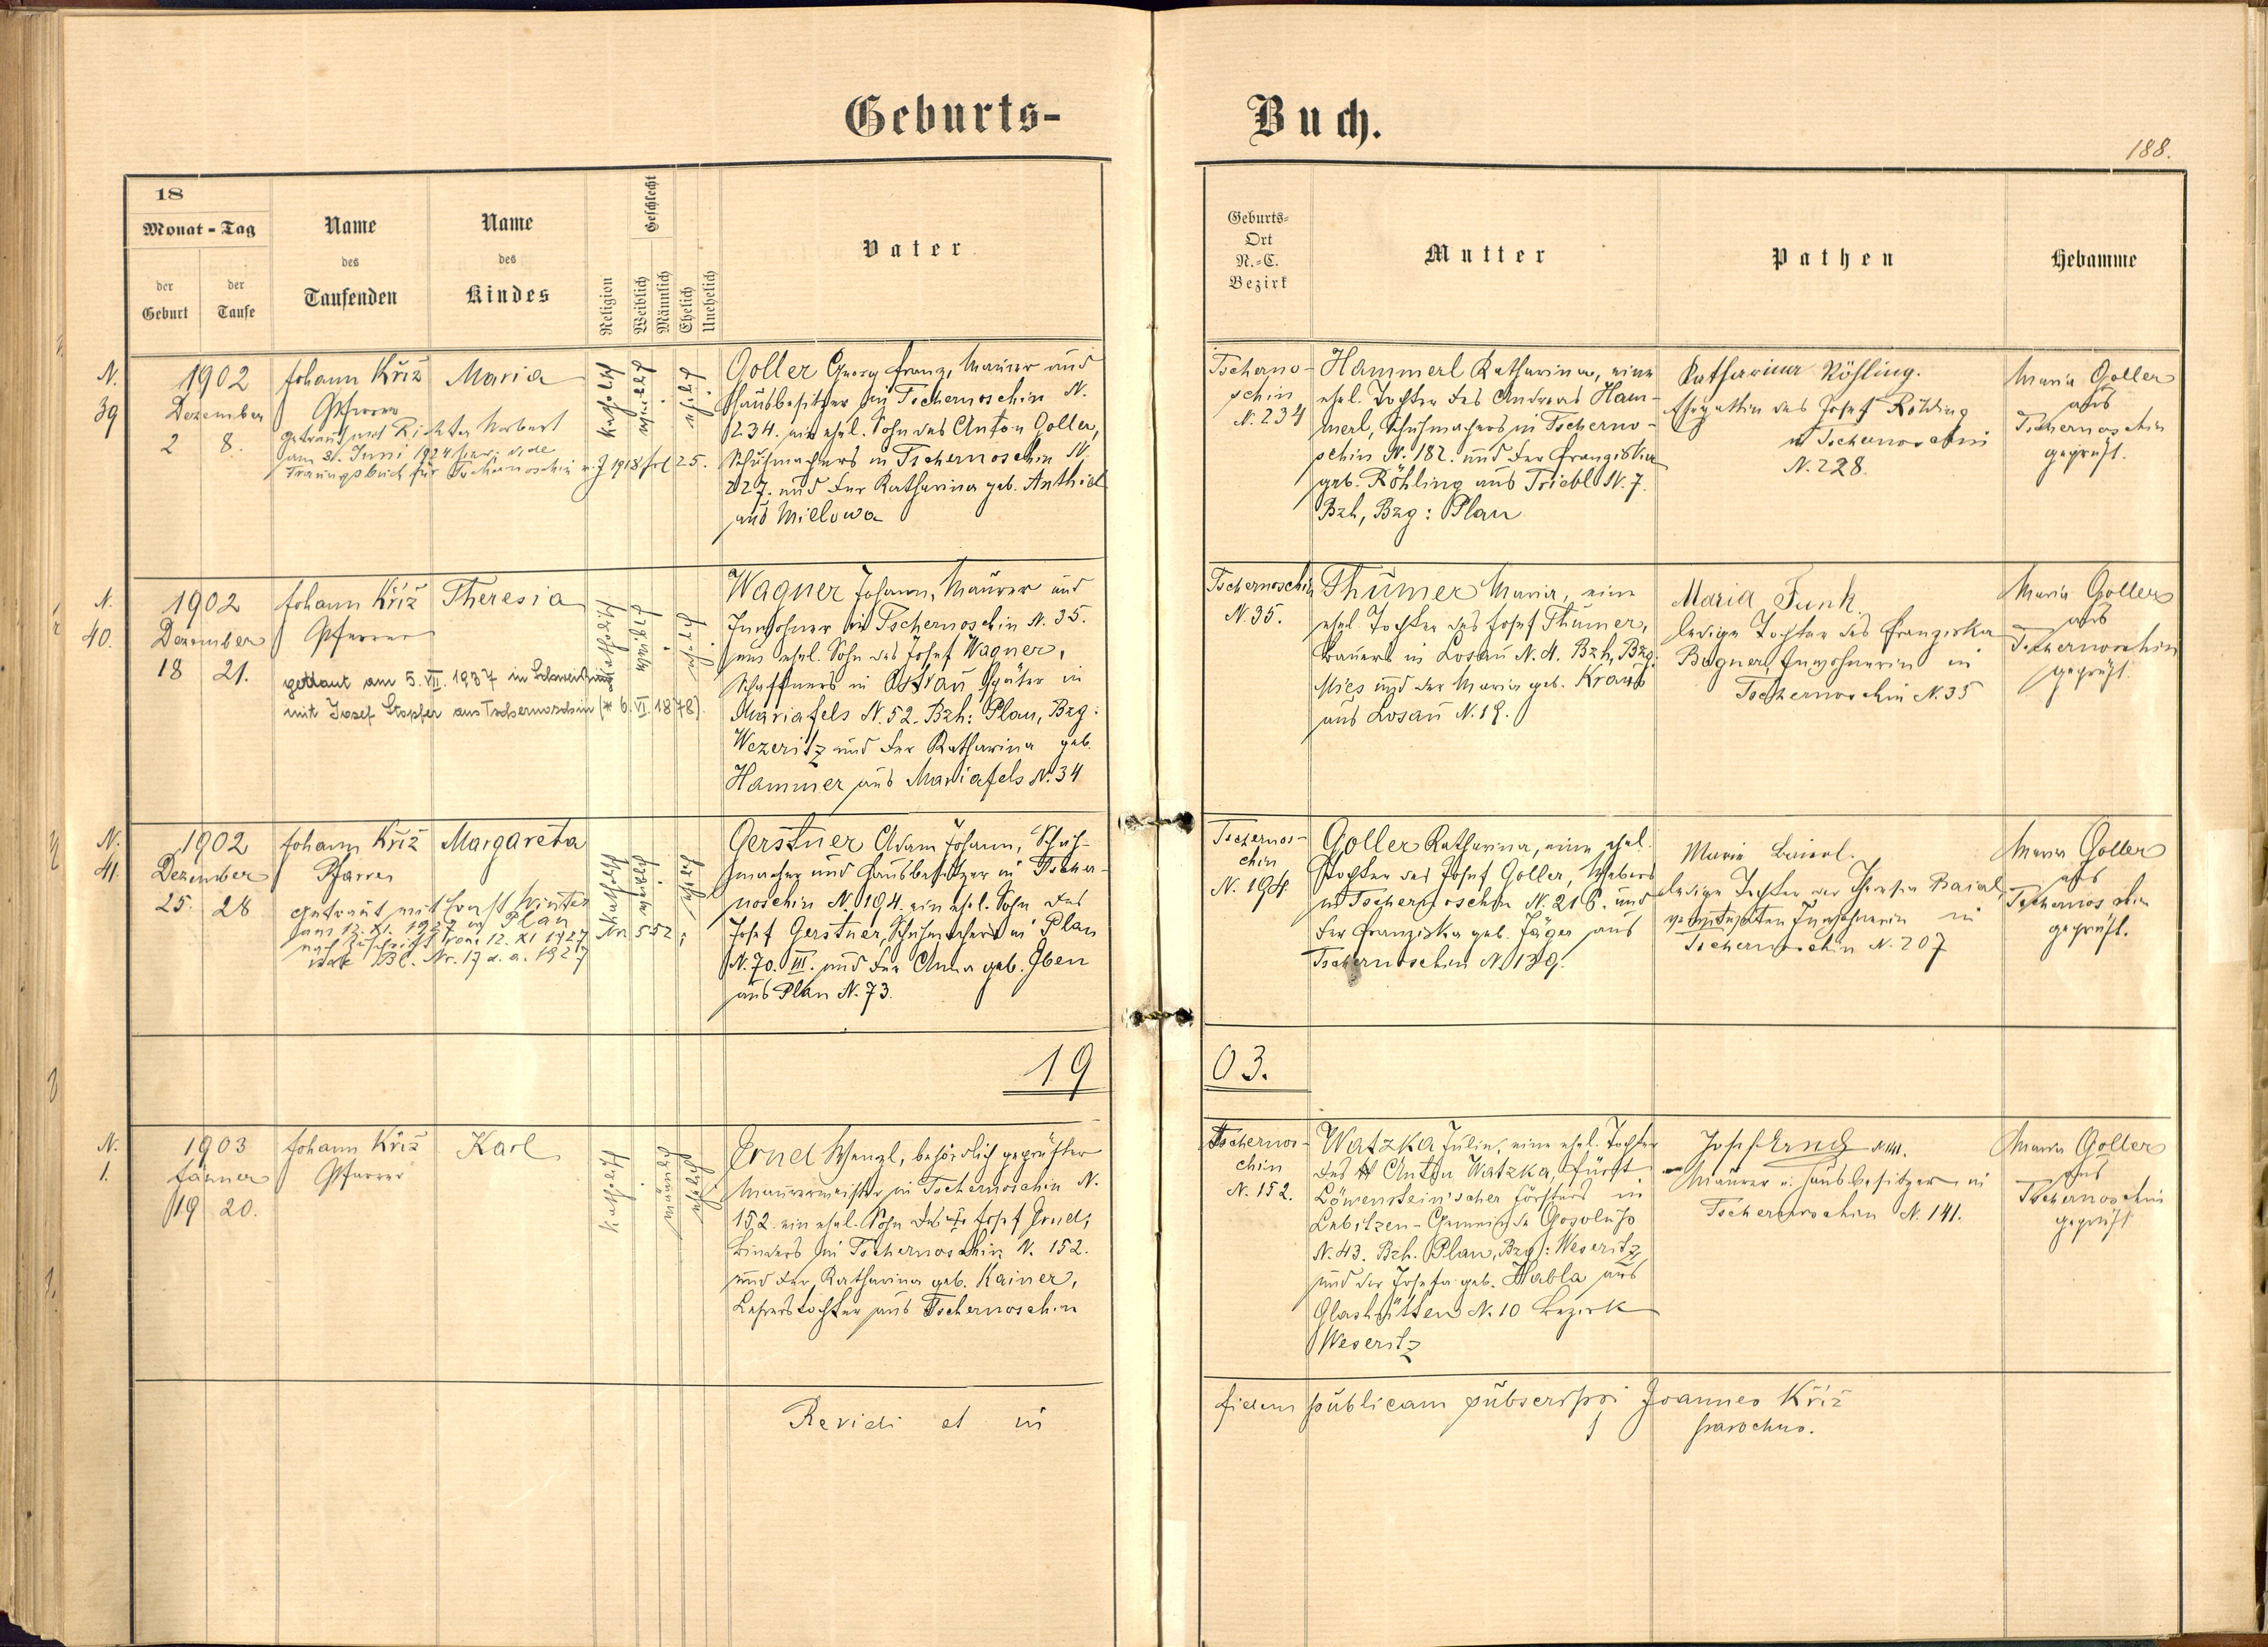 Geburts-
Buch.
188.
18
Monat - Tag
der Geburt
der Taufe
Name des Taufenden
Name des Kindes
Religion
Geschlecht
Weiblich
Männlich
Ehelich
Unehelich
Vater
Geburts-Ort N.-C. Bezirk
Mutter
Pathen
Hebamme
N. 39
1902
Dezember
2 8.
Johann Kříž
Pfarrer
Getraut mit Richter Norbert
am 3. Juni 1924 hier; vide
Trauungsbuch für Tschernoschin v. J 1918 fol 25.
Maria
katholisch
weiblich
ehelich
Goller Georg Franz, Maurer und
Hausbesitzer in Tschernoschin N.
234. ein ehel. Sohn des Anton Goller,
Schuhmachers in Tschernoschin N.
227. und der Katharina geb. Anthiel
aus Millowa
Tscherno-
schin
N. 234
Hammerl Katharina, eine
ehel. Tochter des Andreas Ham-
merl, Schuhmachers in Tscherno-
schin N. 182. und der Franziska
geb. Röhling aus Triebl N. 7.
Bzh, Bzg: Plan
Katharina Röhling.
Ehegattin des Josef Röhling
in Tschernoschin
N. 228.
Maria Goller
aus
Tschernoschin
geprüft.
N. 40.
1902
Dezember
18 21.
Johann Kříž
Pfarrer
getraut am 5. VII. 1937 in
mit Josef Stopfer aus Tschernoschin (* 6. VI. 1878).
Theresia
katholisch
weiblich
ehelich
Wagner Johann, Maurer und
Inwohner in Tschernoschin N. 35.
ein ehel. Sohn des Josef Wagner,
Schaffners in Ostrau später in
Mariafels N. 52. Bzh: Plan, Bzg:
Wezeritz und der Katharina geb.
Hammer aus Mariafels N. 34
Tschernoschin
N. 35.
Thümer Maria, eine
ehel. Tochter des Josef Thümer,
Bauers in Losau N. 4. Bzh, Bzg.
Mies und der Maria geb. Kraus
aus Losau N. 19.
Maria Funk.
ledige Tochter des Franziska
Inwohnerin in
Tschernoschin N. 35
Maria Goller
aus
Tschernoschin
geprüft.
N. 41.
1902
Dezember
25. 28
Johann Kříž
Pfarrer
Getraut mit Ernst Winter
am 12. XI. 1927 in Plan
nach Zuschrift vom 12. XI 1927
Nr. 17 d. a. 1927
Margareta
katholisch
weiblich
ehelich
Gerstner Adam Johann, Schuh-
macher und Hausbesitzer in Tscher-
noschin N. 194. ein ehel. Sohn des
Josef Gerstner, Schuhmachers in Plan
N. 70. III. und der Anna geb. Iben
aus Plan N. 73.
Tschernos-
chin
N. 194
Goller Katharina, eine ehel.
Tochter des Josef Goller, Webers
in Tschernoschin N. 216. und
der Franziska geb. Jäger aus
Tschernoschin N. 139.
Marie Baierl.
ledige Tochter der Theresia Baierl
Inwohnerin in
Tschernoschin N. 207
Maria Goller
aus
Tschernoschin
geprüft.
19
03.
N. 1.
1903
Jänner
19 20.
Johann Kříž
Pfarrer
Karl
katholisch
männlich
ehelich
Ernel Wenzl, behördlich geprüfter
Maurermeister in Tschernoschin N.
152. ein ehel. Sohn des † Josef
Binders in Tschernoschin N. 152.
und der Katharina geb. Kainer,
Lehrerstochter aus Tschernoschin
Tschernos-
chin
N. 152.
Watzka Julie, eine ehel. Tochter
des Anton Watzka, fürst
Löwenstein'scher Försters in
Lobitzen - Gemeinde Gosolup
N. 43. Bzh. Plan, Bzg: Weseritz
und der Josefa geb. Habla aus
Glashütten N. 10 Bezirk
Weseritz
Josef N. 141.
Maurer u. Hausbesitzer in
Tschernoschin N. 141.
Maria Goller
aus
Tschernoschin
geprüft
Revidi et in
fidem publicam subscripsi Joannes Kříž
parochus.